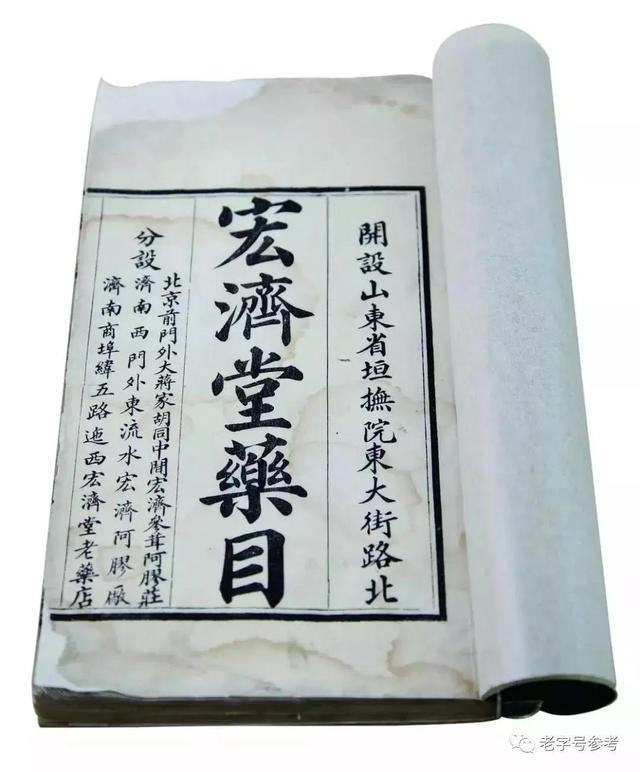 開設山東省垣撫院東大街路北
宏濟堂藥目
分設
北京前門外大蔣家胡同中間宏濟參茸阿膠莊
濟南西門外東流水宏濟阿膠廠
濟南商埠緯五路迤西宏濟堂老藥店
老字号参考